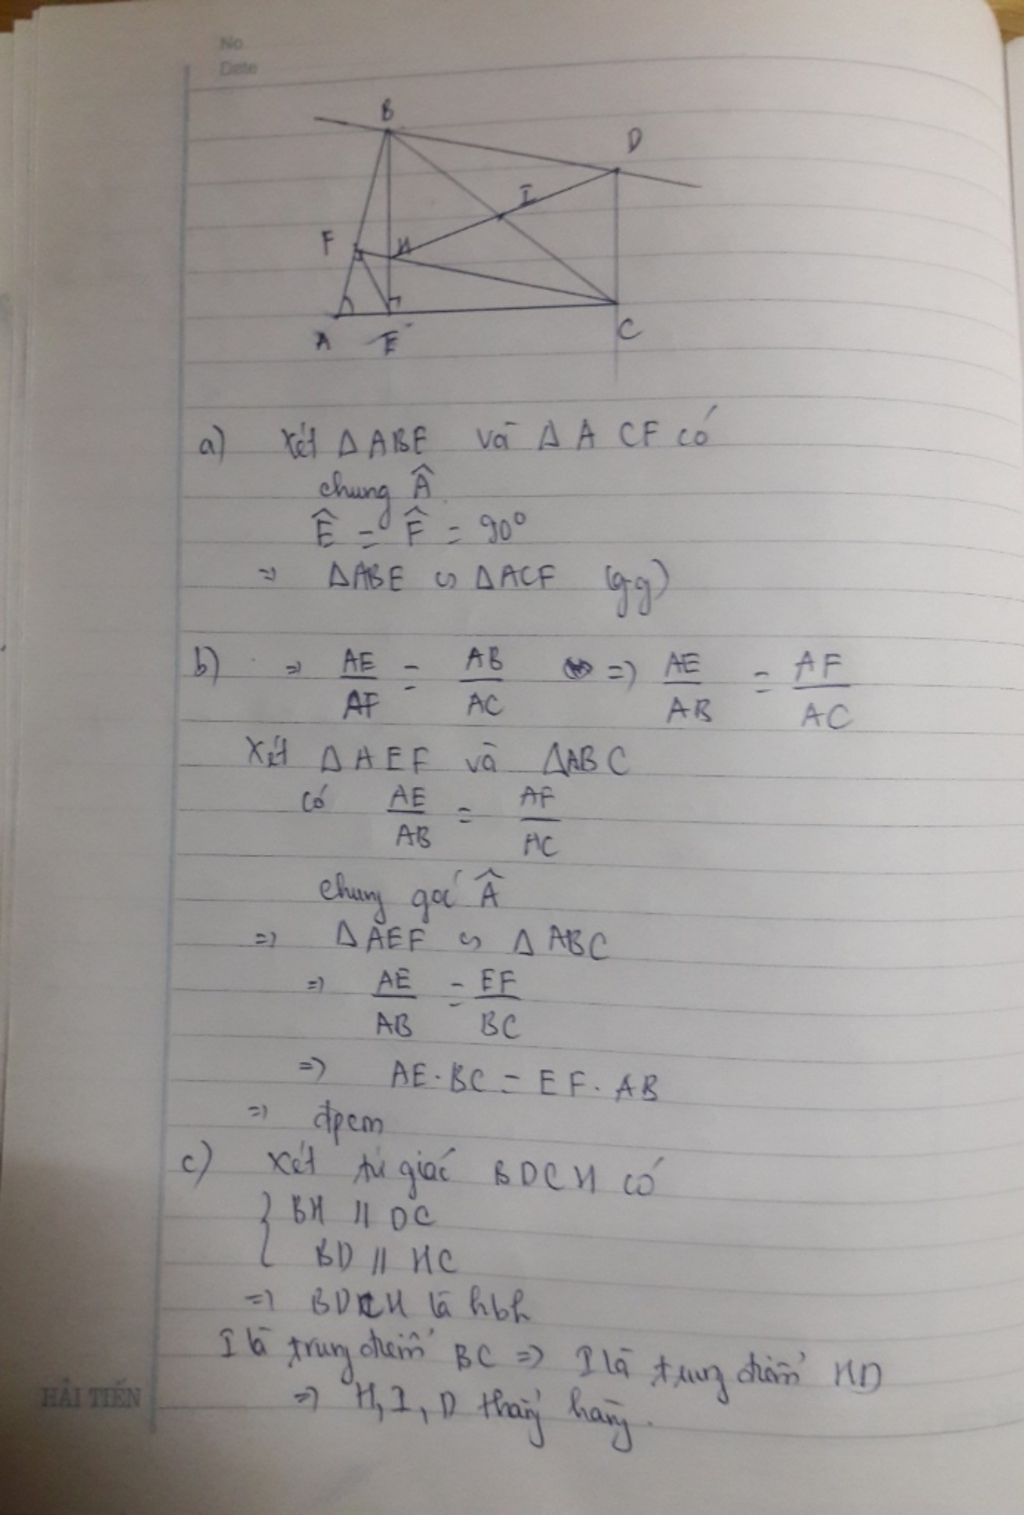 No.
Date
B
D
I
F
H
A
E
C
a) Xét ΔABE và ΔACF có
chung Â
Ê = F̂ = 90°
=> ΔABE ∽ ΔACF (gg)
b) => AE/AF = AB/AC => AE/AB = AF/AC
Xét ΔAEF và ΔABC
có AE/AB = AF/AC
chung góc Â
=> ΔAEF ∽ ΔABC
=> AE/AB = EF/BC
=> AE.BC = EF.AB
=> đpcm
c) Xét tứ giác BDCH có
{ BH // DC
BD // HC
=> BDCH là hbh
I là trung điểm BC => I là trung điểm HD
=> H, I, D thẳng hàng.
HẢI TIẾN